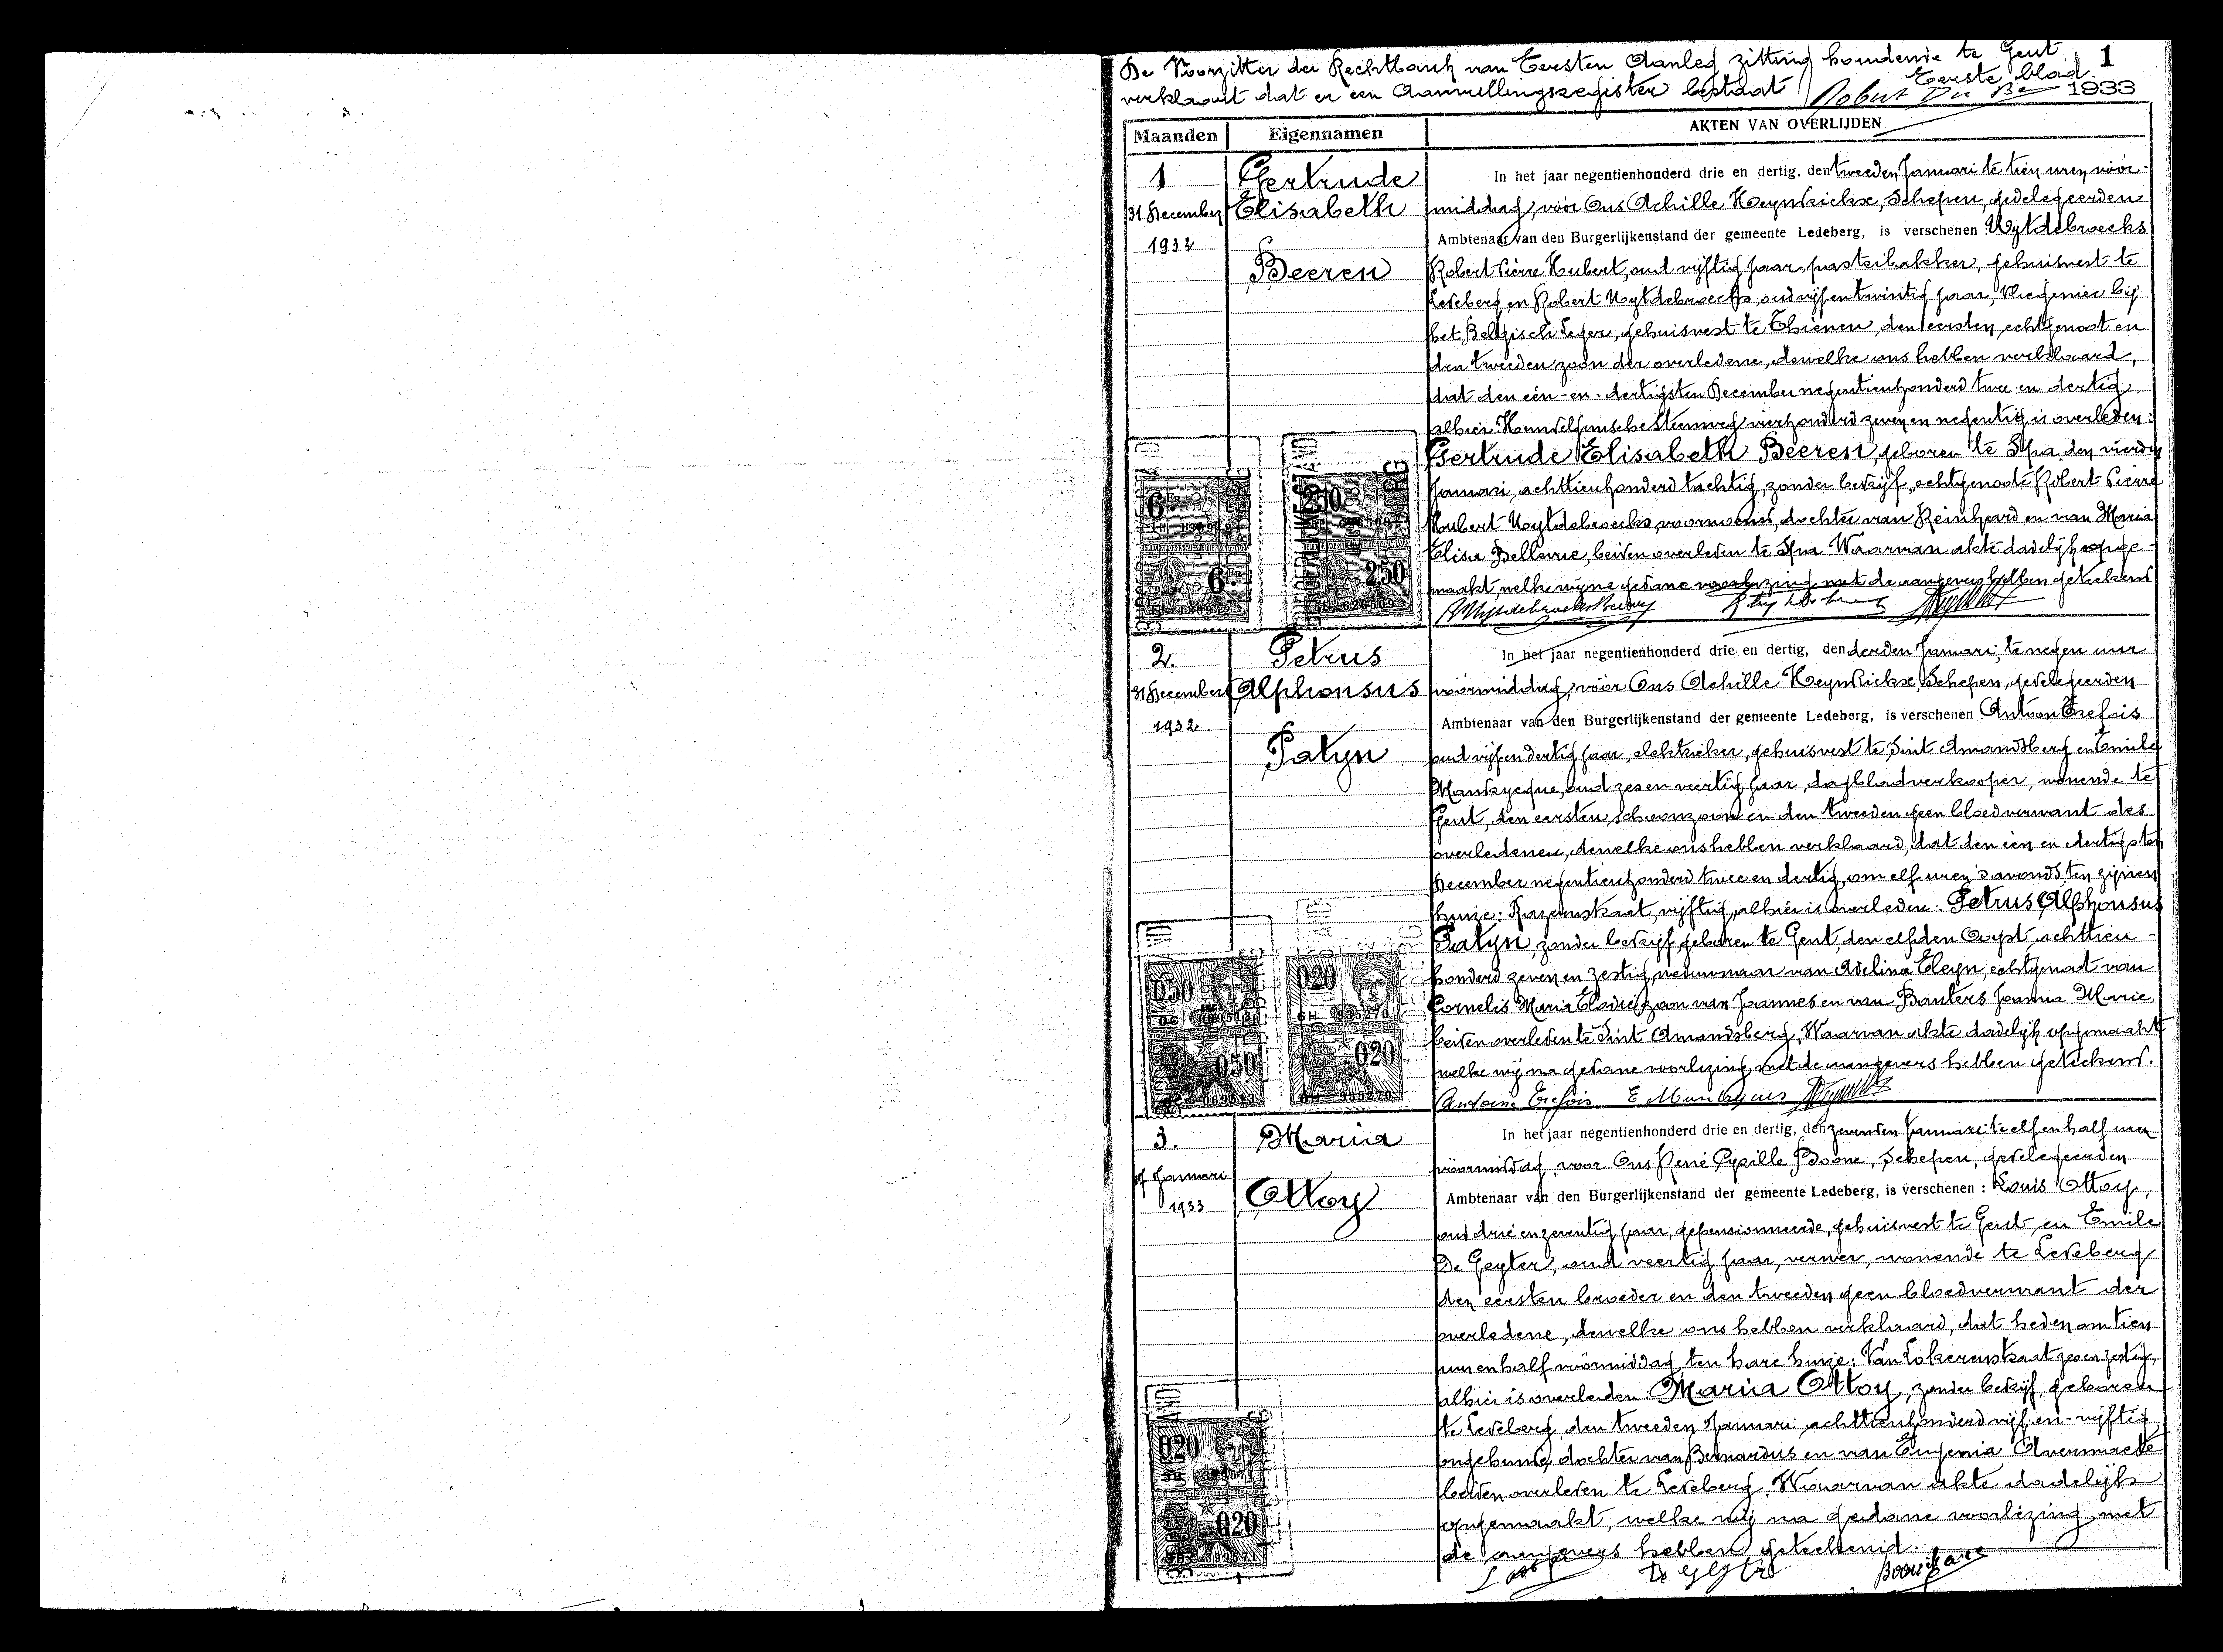 De Voorzitter der Rechtbank van Eersten Aanleg zitting houdende te Gent 1
verklaart dat er een Aanvullingsregister bestaat Eerste blad.
1933
Maanden Eigennamen AKTEN VAN OVERLIJDEN
1 Gertrude In het jaar negentienhonderd drie en dertig, den tweeden Januari te tien uren vóór-
31 December Elisabeth middag, vóór Ons Achille Heyndrickx, Schepen, gedelegeerden
1932 Ambtenaar van den Burgerlijkenstand der gemeente Ledeberg, is verschenen: Uytdebroecks
Beeren Robert Pierre Hubert, oud vijftig jaar, pasteibakker, gehuisvest te
Ledeberg en Robert Uytdebroecks, oud vijfentwintig jaar, vliegenier bij
het Belgisch Leger, gehuisvest te Thienen, den eersten echtgenoot en
den tweeden zoon der overledene, dewelke ons hebben verklaard,
dat den één-en-dertigsten December negentienhonderd twee en dertig,
alhier Hundelgemsche Steenweg vierhonderd zeven en negentig is overleden:
Gertrude Elisabeth Beeren, geboren te Spa, den vierden
Januari achttienhonderd tachtig, zonder bedrijf, echtgenoote Robert Pierre
Hubert Uytdebroecks voornoemd, dochter van Reinhard en van Maria
Elisa Bellevue, beiden overleden te Spa. Waarvan akte dadelijk opge-
maakt, welke wij na gedane voorlezing met de aangevers hebben geteekend
6 FR
250
6 FR
250
2. Petrus In het jaar negentienhonderd drie en dertig, den derden Januari, te negen uur
31 December Alphonsus voormiddag, vóór Ons Achille Heyndrickx, Schepen, gedelegeerden
1932 Ambtenaar van den Burgerlijkenstand der gemeente Ledeberg, is verschenen Antoon Trefois
Patyn oud vijfendertig jaar, elektrieker, gehuisvest te Sint Amandsberg en Emile
oud zes en veertig jaar, dagbladverkooper, wonende te
Gent, den eersten schoonzoon en den tweeden geen bloedverwant des
overledenen, dewelke ons hebben verklaard, dat den één en dertigsten
December negentienhonderd twee en dertig, om elf uren 's avonds, ten zijnen
huize: Rozenstraat, vijftig, alhier is overleden: Petrus Alphonsus
Patyn, zonder bedrijf, geboren te Gent, den elfden Oogst achttien-
honderd zeven en zestig, weduwnaar van Adelina Eleyn, echtgenoot van
Cornelis Maria Elodie, zoon van Joannes en van Bauters Joanna Marie,
beiden overleden te Sint Amandsberg. Waarvan akte dadelijk opgemaakt
welke wij na gedane voorlezing met de aangevers hebben geteekend.
Antoine Trefois
050
020
050
020
3. Maria In het jaar negentienhonderd drie en dertig, den zevenden Januari te elf en half uur
7 Januari voormiddag voor Ons René Cyrille Boone, Schepen, gedelegeerden
1933 Ottoy Ambtenaar van den Burgerlijkenstand der gemeente Ledeberg, is verschenen: Louis Ottoy,
oud drie en zeventig jaar, gepensionneerde, gehuisvest te Gent en Emile
De Geyter, oud veertig jaar, verver, wonende te Ledeberg
den eersten broeder en den tweeden geen bloedverwant der
overledene, dewelke ons hebben verklaard, dat heden om tien
uur en half voormiddag ten hare huize: Van Lokerenstraat zes en zestig,
alhier is overleden: Maria Ottoy, zonder bedrijf, geboren
te Ledeberg den tweeden Januari achttienhonderd vijf-en-vijftig
ongehuwd, dochter van Bernardus en van Eugenia Avermaete
beiden overleden te Ledeberg. Waarvan akte dadelijk
opgemaakt, welke wij na gedane voorlezing met
de aangevers hebben geteekend.
020
020